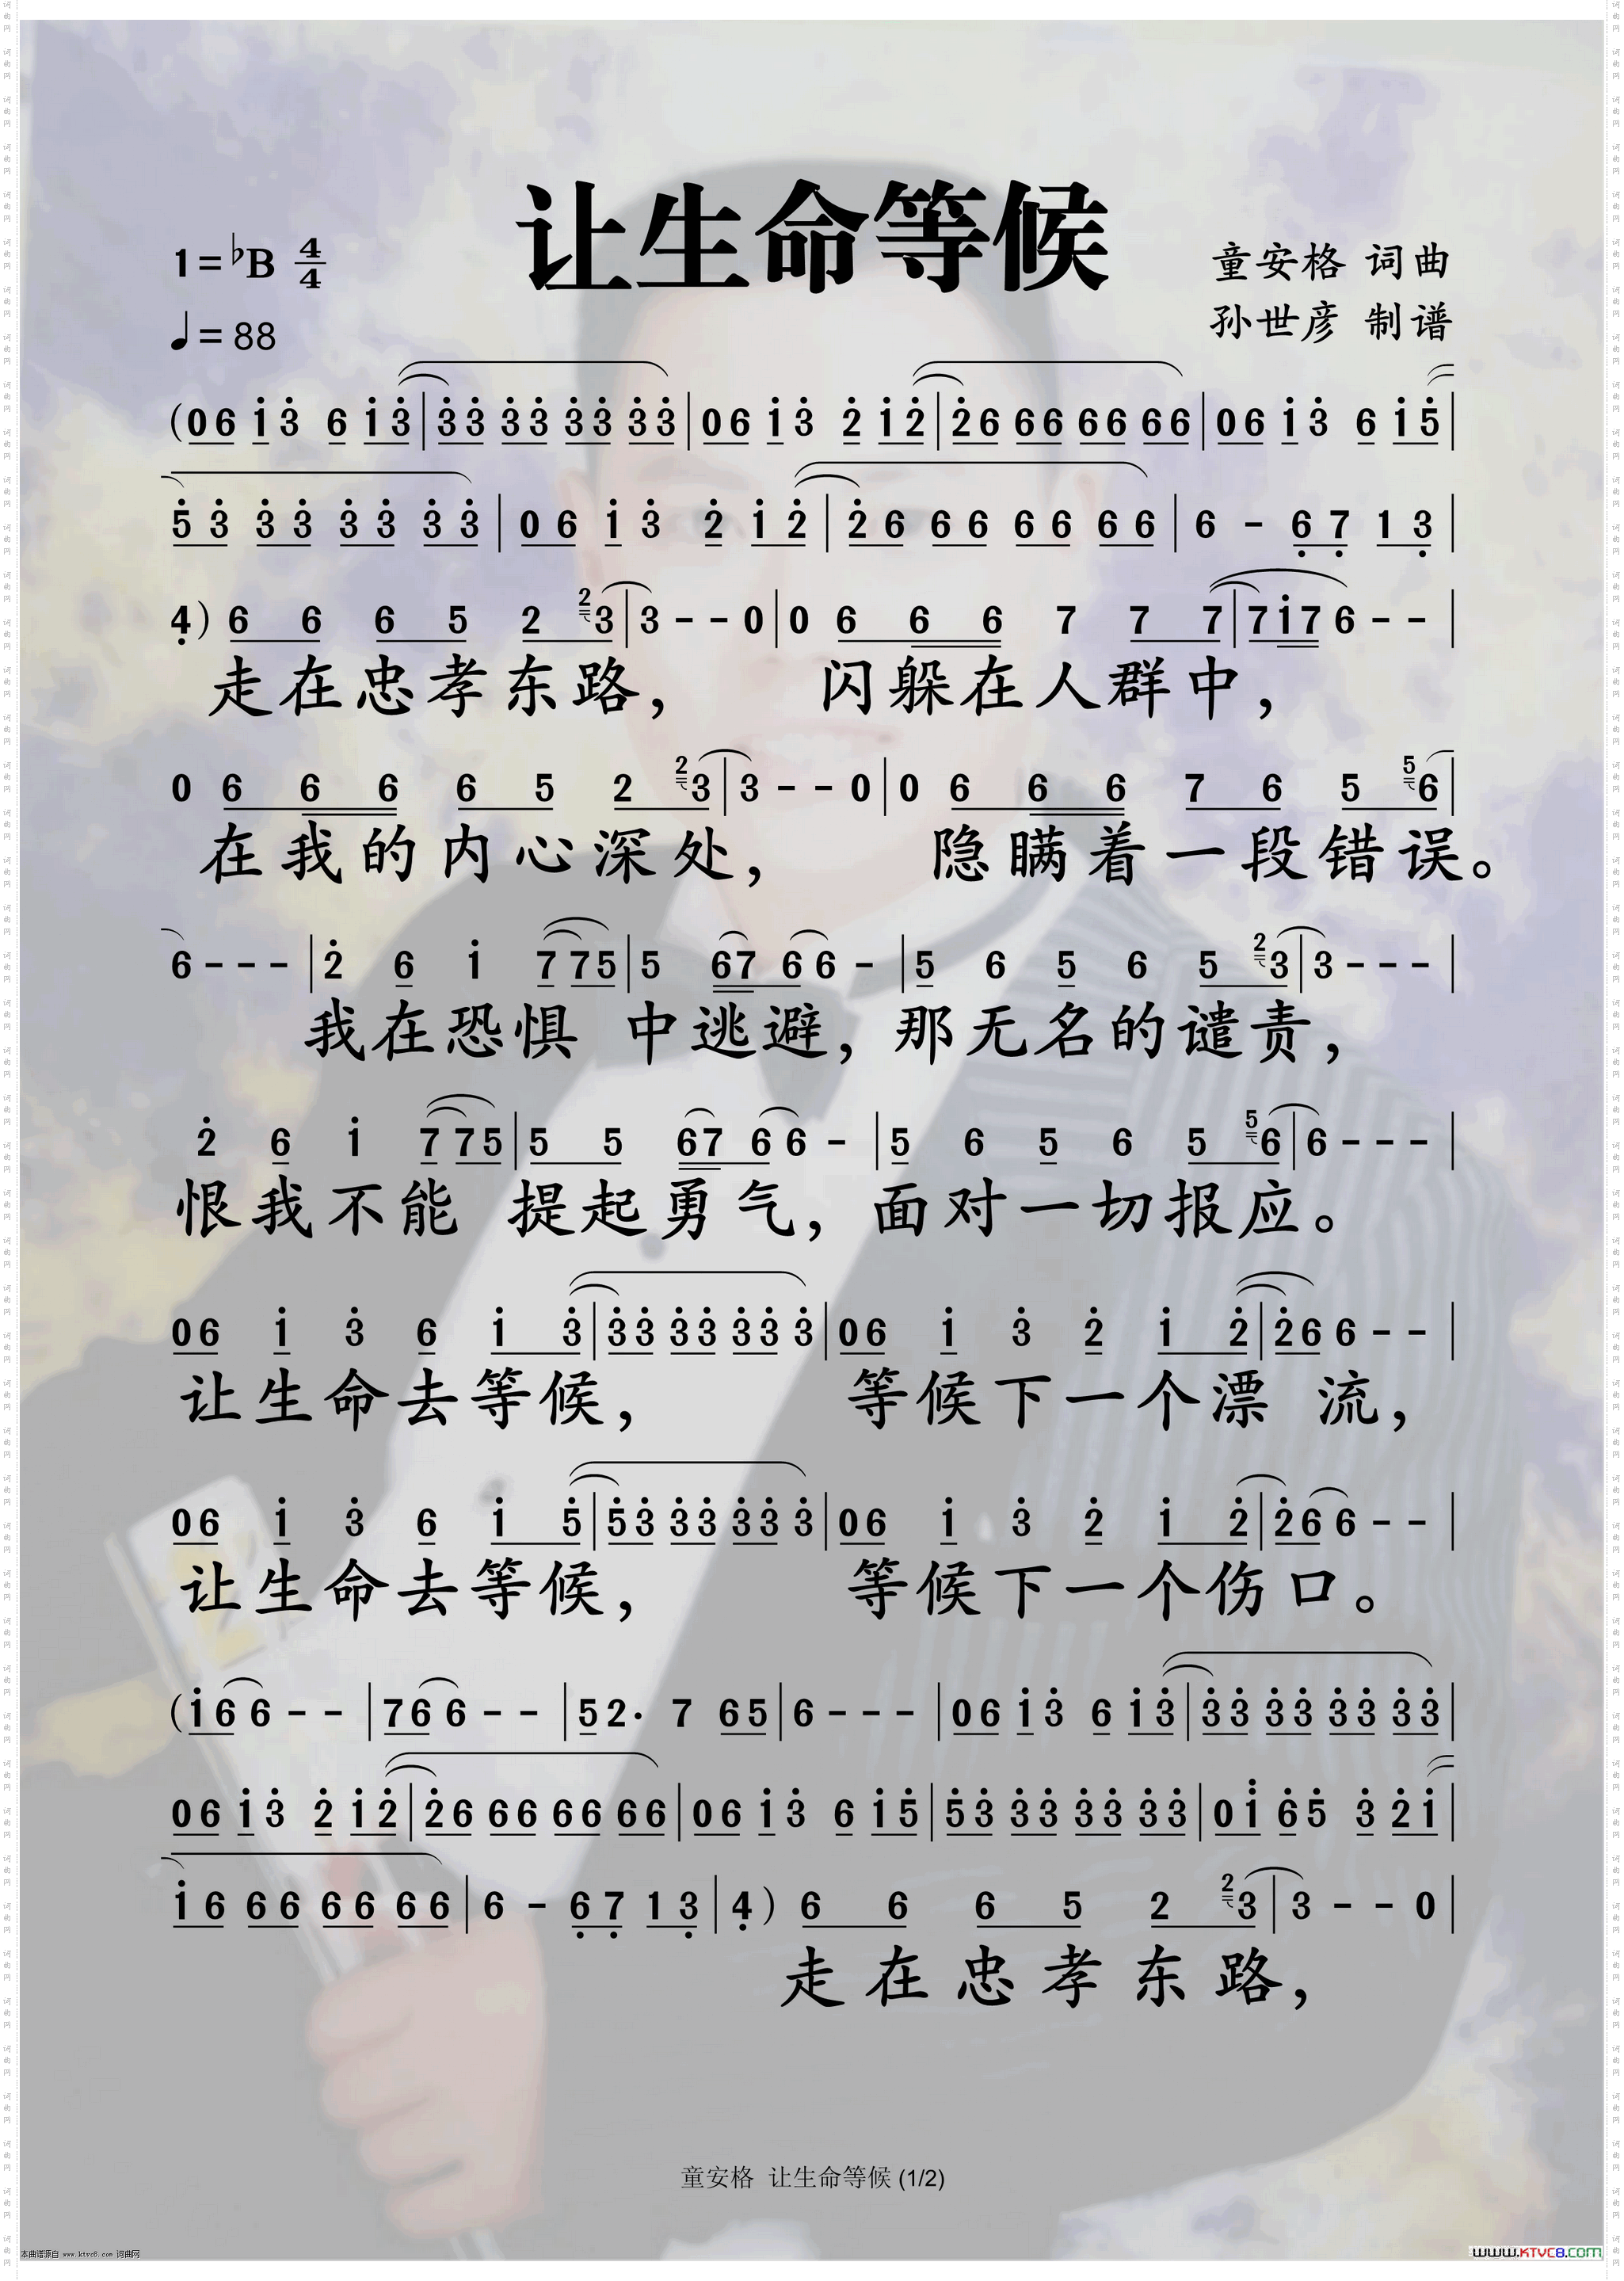 让生命等候
1=♭B 4/4
♩=88
童安格 词曲
孙世彦 制谱
(06 1̇3̇ 6 1̇3̇|3̇3̇ 3̇3̇ 3̇3̇ 3̇3̇|06 1̇3̇ 2̇ 1̇2̇|2̇6 66 66 66|06 1̇3̇ 6 1̇5̇|
5̇3̇ 3̇3̇ 3̇3̇ 3̇3̇|06 1̇3̇ 2̇ 1̇2̇|2̇6 66 66 66|6 - 6̣7̣ 13̣|
4̣) 6 6 6 5 2 23|3 - - 0|0 6 6 6 7 7 7|71̇7 6 - -|
走在忠孝东路, 闪躲在人群中,
0 6 6 6 6 5 2 23|3 - - 0|0 6 6 6 7 6 5 56|
在我的内心深处, 隐瞒着一段错误。
6 - - -|2̇ 6 1̇ 7 75|5 67 66 -|5 6 5 6 5 23|3 - - -|
我在恐惧 中逃避, 那无名的谴责,
2̇ 6 1̇ 7 75|5 5 67 66 -|5 6 5 6 5 56|6 - - -|
恨我不能 提起勇气, 面对一切报应。
06 1̇ 3̇ 6 1̇ 3̇|3̇3̇ 3̇3̇ 3̇3̇ 3̇|06 1̇ 3̇ 2̇ 1̇ 2̇|2̇6 6 - -|
让生命去等候, 等候下一个漂 流,
06 1̇ 3̇ 6 1̇ 5̇|5̇3̇ 3̇3̇ 3̇3̇ 3̇|06 1̇ 3̇ 2̇ 1̇ 2̇|2̇6 6 - -|
让生命去等候, 等候下一个伤口。
(1̇6 6 - -|76 6 - -|52· 7 65|6 - - -|06 1̇3̇ 6 1̇3̇|3̇3̇ 3̇3̇ 3̇3̇ 3̇3̇|
06 1̇3̇ 2̇ 1̇2̇|2̇6 66 66 66|06 1̇3̇ 6 1̇5̇|5̇3̇ 3̇3̇ 3̇3̇ 3̇3̇|01̈ 6̇5̇ 3̇ 2̇1̇|
1̇6 66 66 66|6 - 6̣7̣ 13̣|4̣) 6 6 6 5 2 23|3 - - 0|
走在忠孝东路,
童安格 让生命等候 (1/2)
本曲谱源自 www.ktvc8.com 词曲网
www.KTVC8.com